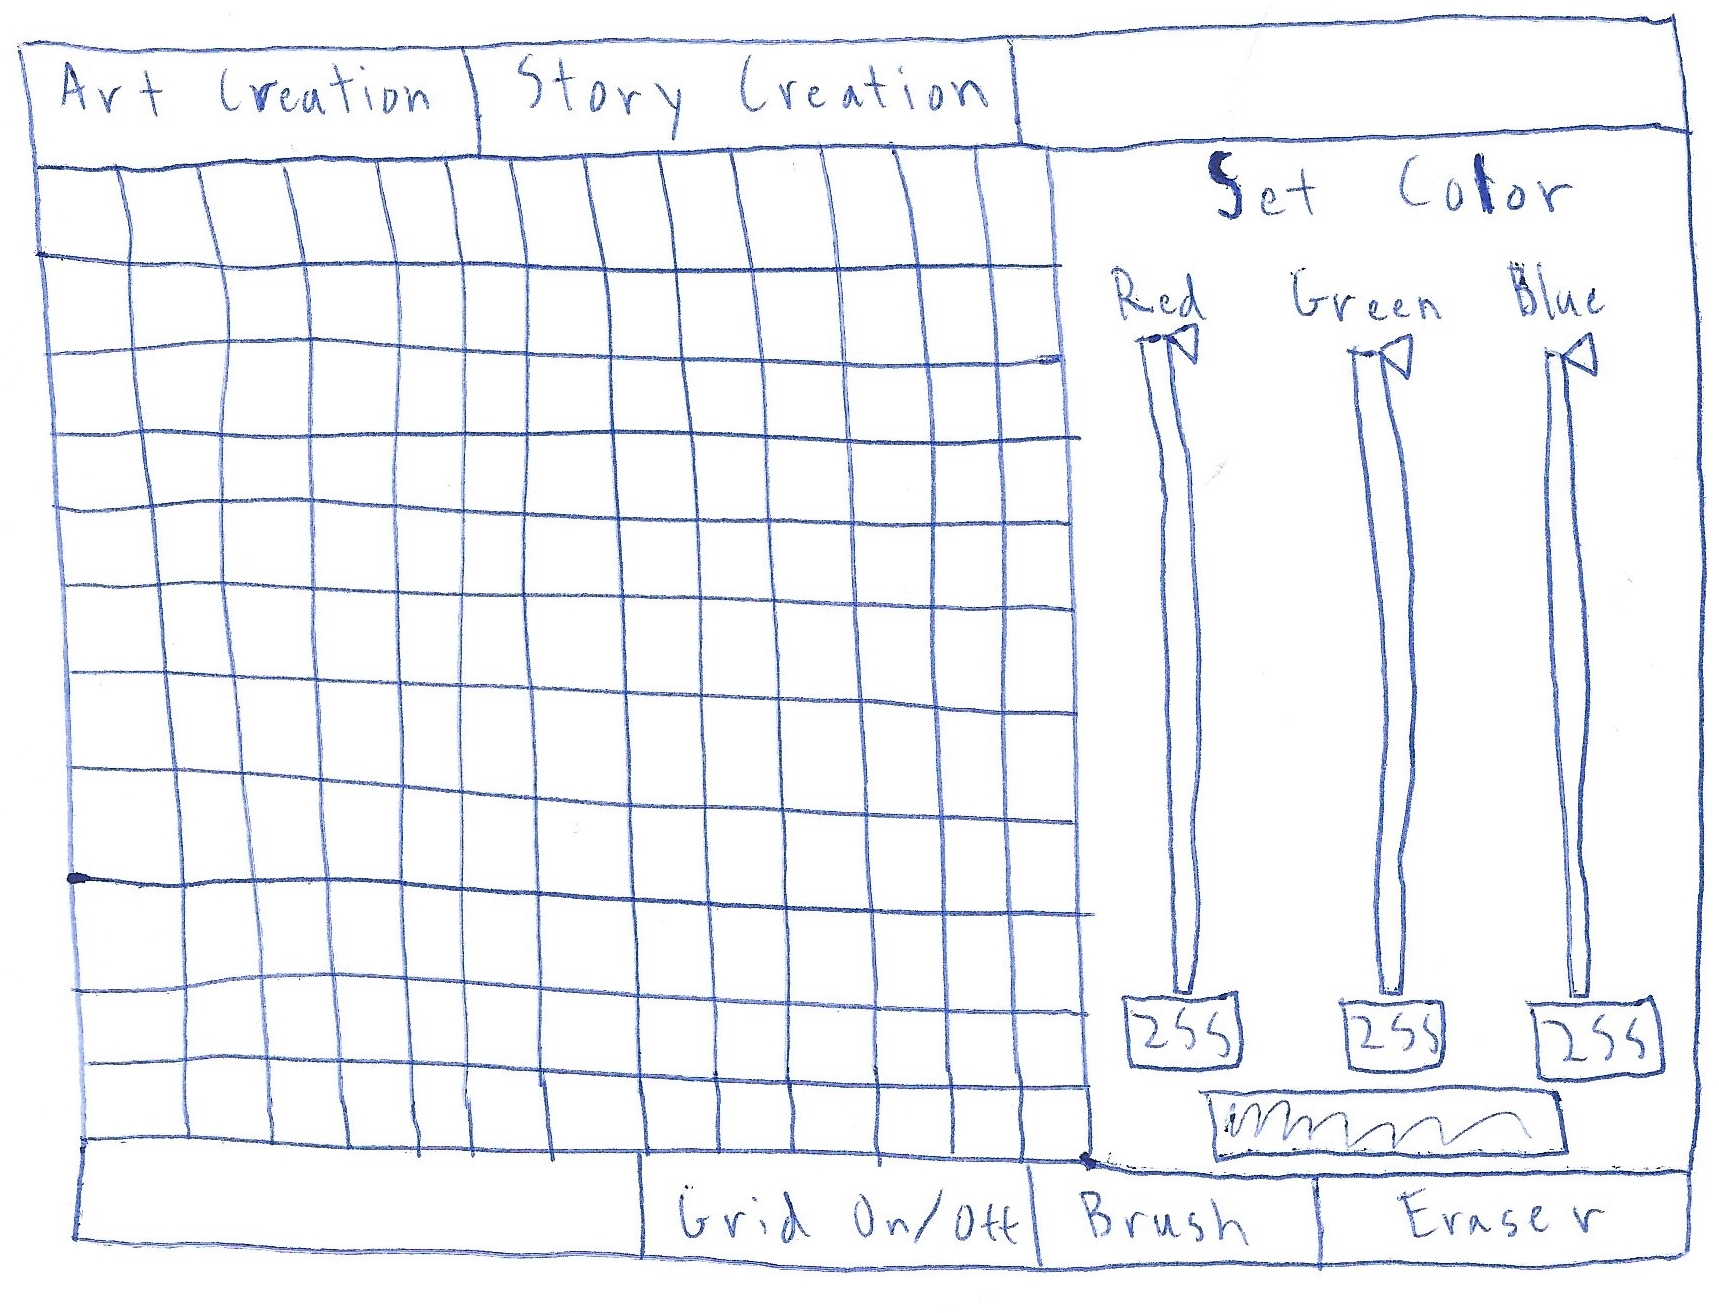 Art Creation Story Creation
Set Color
Red Green Blue
255 255 255
Grid On/Off Brush Eraser